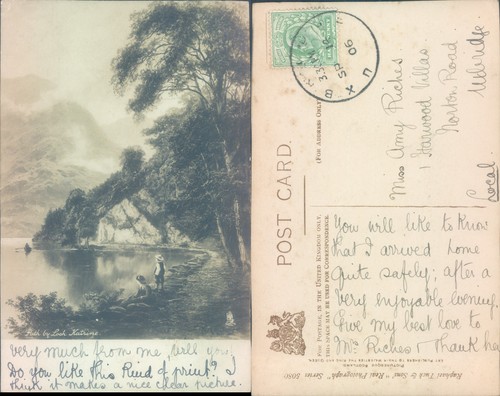 Path by Loch Katrine
very much from me, will you,
Do you like this kind of print? I
think it makes a nice clear picture.
POST CARD.
(FOR ADDRESS ONLY)
FOR POSTAGE, IN THE UNITED KINGDOM ONLY,
THIS SPACE MAY BE USED FOR CORRESPONDENCE
Miss Amy Riches
1 Harwood Villas
Norton Road
Uxbridge
Local.
You will like to know
that I arrived home
quite safely; after a
very enjoyable evening.
Give my best love to
Mrs Riches & thank her
Raphael Tuck & Sons' "Real Photograph" Series
UXB
SP
06